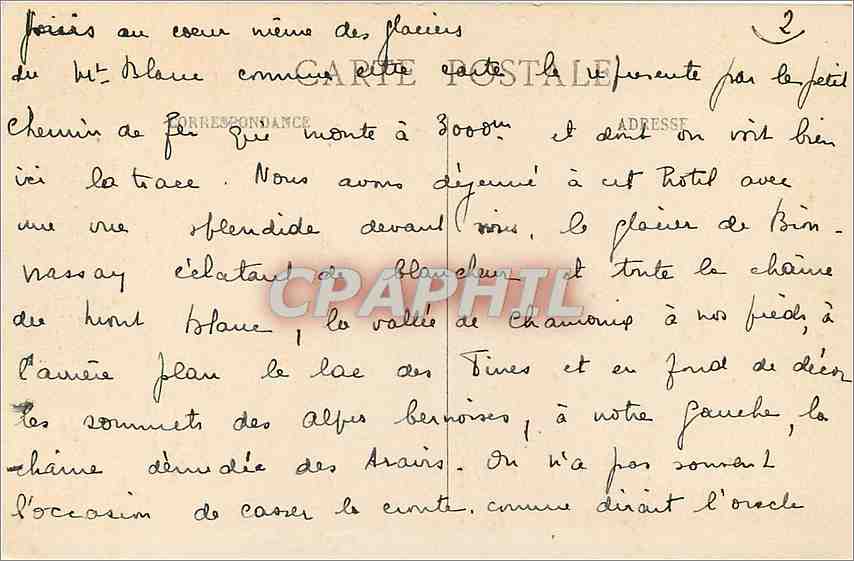 2
au coeur même des glaciers
du Mt Blanc comme cette carte le represente par le petit
CARTE POSTALE
chemin de fer qui monte à 3000m et dont on voit bien
CORRESPONDANCE
ADRESSE
ici la trace. Nous avons déjeuné à cet hotel avec
une vue splendide devant nous, le glacier de Bion-
nassay éclatant de blancheur et toute la chaîne
CPAPHIL
du Mont Blanc, la vallée de Chamonix à nos pieds, à
l'arrière plan le lac des Tines et en fond de décor
les sommets des Alpes bernoises, à notre gauche, la
chaîne dénudée des Aravis. On n'a pas souvent
l'occasion de casser la croute, comme dirait l'oncle